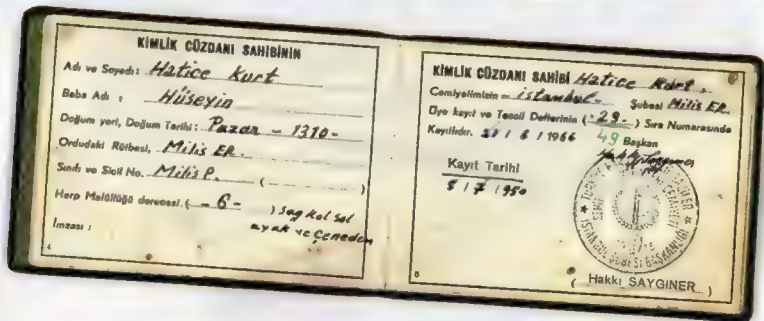 KİMLİK CÜZDANI SAHİBİNİN
Adı ve Soyadı: Hatice Kurt
Baba Adı : Hüseyin
Doğum yeri, Doğum Tarihi: Pazar - 1310-
Ordudaki Rütbesi, Milis ER.
Sınıfı ve Sicil No. Milis P. ( )
Harp Malüllüğü derecesi ( - 6 - ) sağ kol sol
ayak ve Çeneden
İmzası :
4
KİMLİK CÜZDANI SAHİBİ Hatice Kurt.
Cemiyetimizin - istanbul- Şubesi Milis ER.
Üye kayıt ve Tescil Defterinin ( -29- ) Sıra Numarasında
Kayıtlıdır. / 6 / 1966 49 Başkan
Kayıt Tarihi
5 / 7 / 1950
İSTANBUL ŞUBESİ BAŞKANLIĞI
( Hakkı SAYGINER )